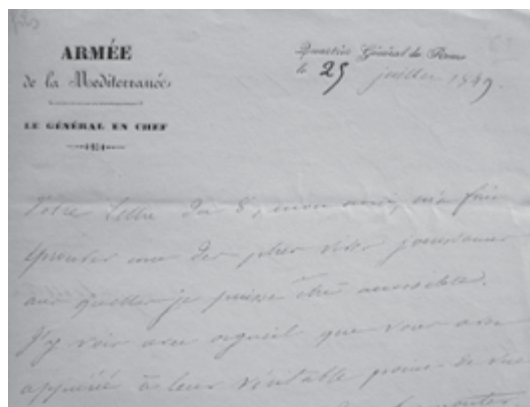 fils
ARMÉE
de la Mediterranée
LE GÉNÉRAL EN CHEF
Quartier Général de Rome
le 25 juillet 1849.
Votre lettre du 8, mon ami, m'a fait
éprouver une des plus vives jouissances
aux quelles je puisse être accessible.
J'y vois avec orgueil que vous avez
apprécié à leur véritable point de vue